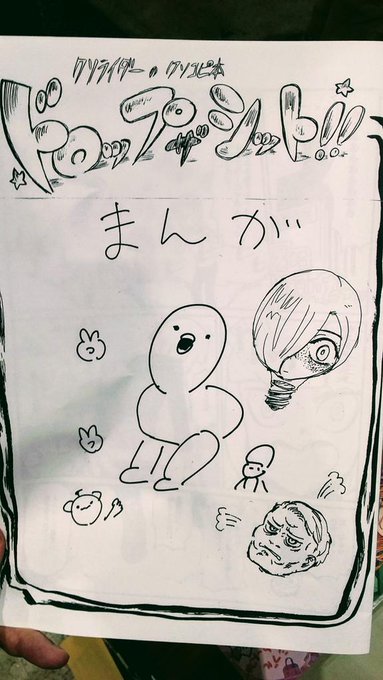 クソライダーのクソコピ本
ドロップザシット!!
まんが